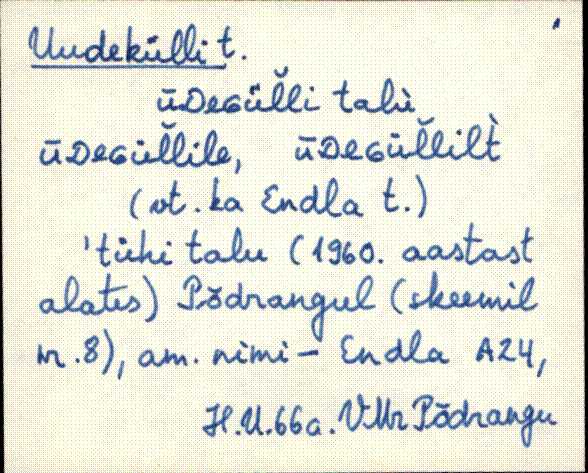 Uudekülli t.
ūDeGüĽ̆li talù
ūDeGüĽ̆lile, ūDeGüĽ̆lilt̀
(vt. ka Endla t.)
'tühi talu (1960. aastast
alates) Põdrangul (skeemil
nr. 8), am. nimi - Endla A24,
H.U. 66a. VMr Põdrangu